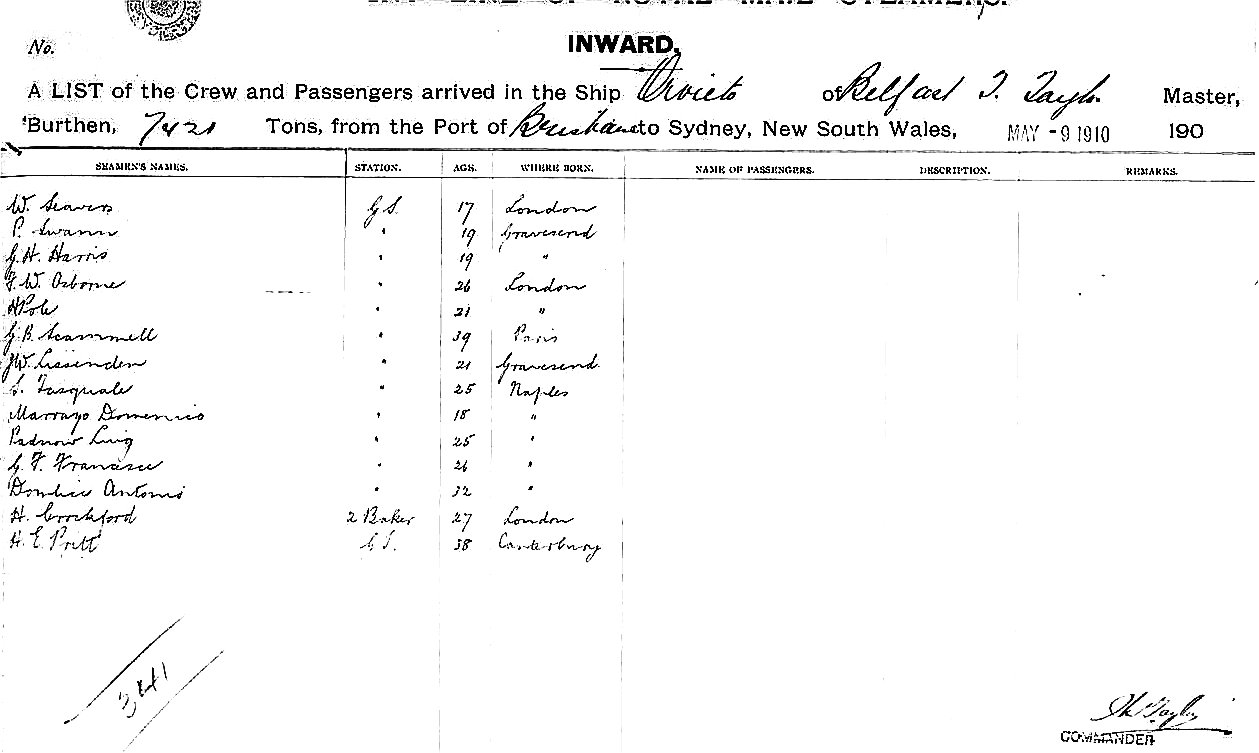 LINE OF ROYAL MAIL STEAMERS.
No.
INWARD.
A LIST of the Crew and Passengers arrived in the Ship Orvieto of Belfast T. Taylor Master,
Burthen, 7421 Tons, from the Port of Brisbane to Sydney, New South Wales, MAY -9 1910 190
SEAMEN'S NAMES. STATION. AGE. WHERE BORN. NAME OF PASSENGERS. DESCRIPTION. REMARKS.
W. Seavers G.S. 17 London
P. Swann " 19 Gravesend
G. H. Harris " 19 "
F. W. Osborne " 26 London
H Pole " 21 "
G. B. Scammell " 39 Paris
J W. Lissenden " 21 Gravesend
S. Pasquale " 25 Naples
Marrayo Domenico " 18 "
Luig " 25 "
G. F. " 26 "
Antonio " 32 "
H. Crockford 2 Baker 27 London
H. E. Pritt G.S. 38 Canterbury
3841
Taylor
COMMANDER